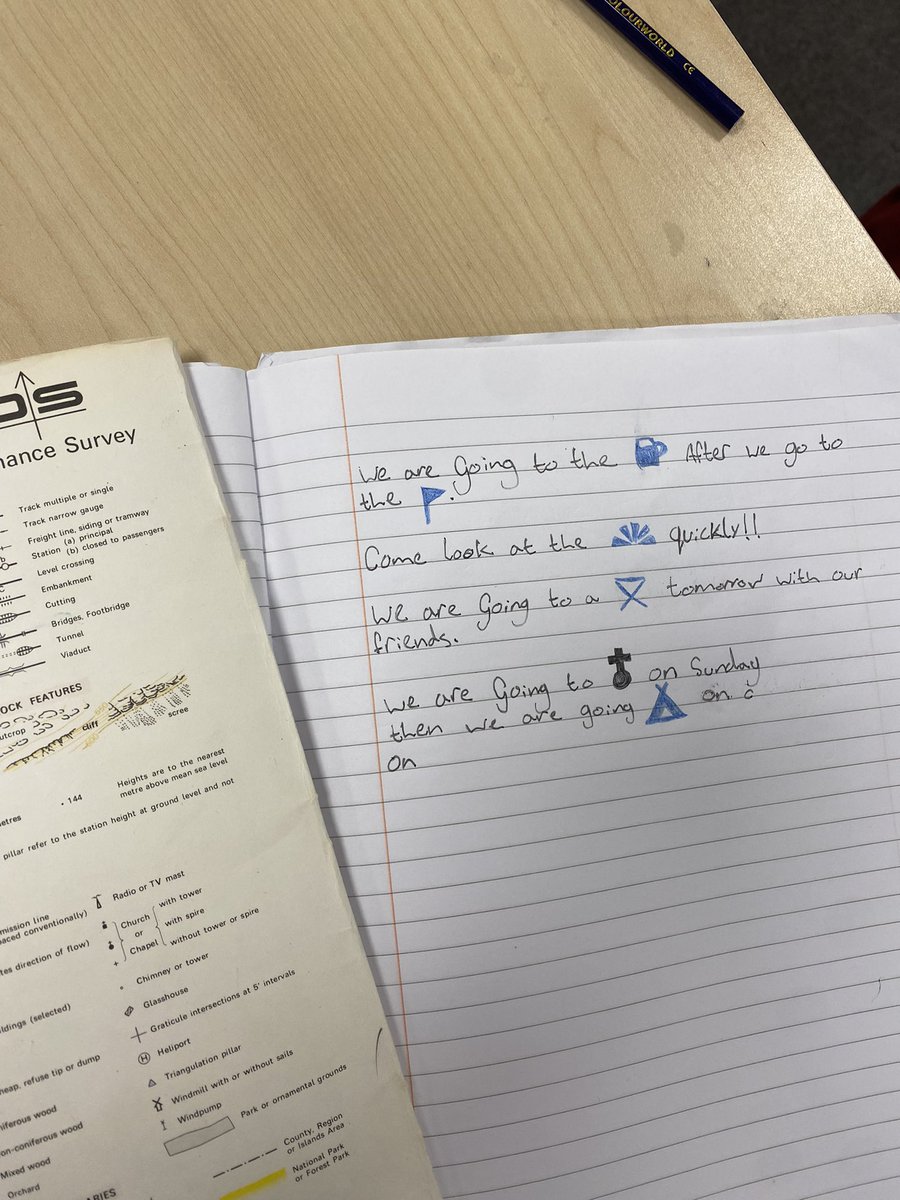 COLOURWORLD CE
OS
nance Survey
Track multiple or single
Track narrow gauge
Freight line, siding or tramway
Station (a) principal
(b) closed to passengers
Level crossing
Embankment
Cutting
Bridges, Footbridge
Tunnel
Viaduct
OCK FEATURES
utcrop
cliff
scree
. 144
Heights are to the nearest
metre above mean sea level
etres
pillar refer to the station height at ground level and not
mission line
paced conventionally)
tes direction of flow)
ildings (selected)
heap, refuse tip or dump
niferous wood
on-coniferous wood
Mixed wood
Orchard
ARIES
Radio or TV mast
Church
or
Chapel
with tower
with spire
without tower or spire
Chimney or tower
Glasshouse
Graticule intersections at 5' intervals
H Heliport
Triangulation pillar
Windmill with or without sails
Windpump
Park or ornamental grounds
County, Region
or Islands Area
National Park
or Forest Park
We are Going to the After we go to
the .
Come look at the quickly!!
We are Going to a tomorrow with our
friends.
we are Going to on Sunday
then we are going on c
on